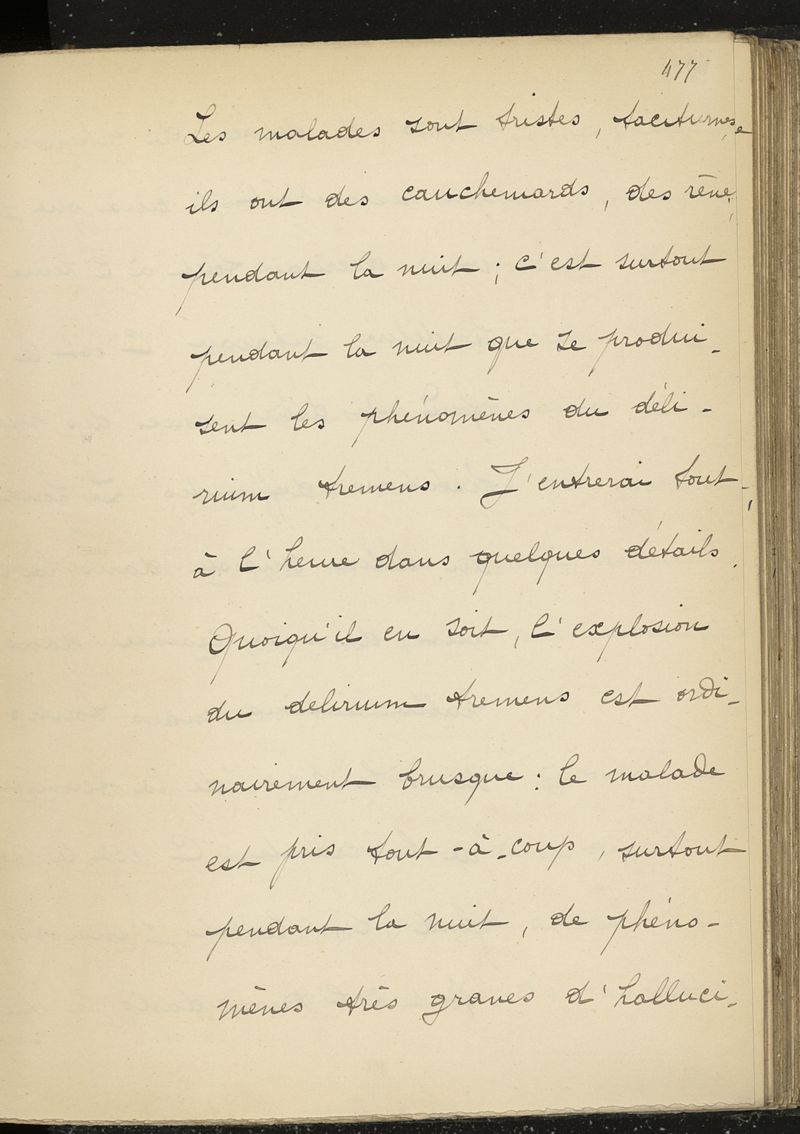 477
Les malades sont tristes, taciturnes,
ils ont des cauchemards, des rêves
pendant la nuit ; c'est surtout
pendant la nuit que se produi-
sent les phénomènes du déli-
rium tremens. J'entrerai tout-
à l'heure dans quelques détails.
Quoiqu'il en soit, l'explosion
du delirium tremens est ordi-
nairement brusque : le malade
est pris tout-à-coup, surtout
pendant la nuit, de phéno-
mènes très graves d'halluci-